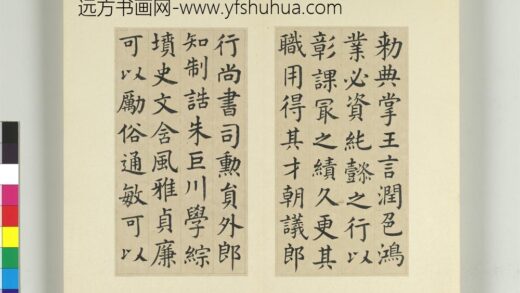 远方书画网-www.yfshuhua.com
勑典掌王言潤色鴻
業必資純懿之行以
彰課冣之績久更其
職用得其才朝議郎
行尚書司勳貟外郎
知制誥朱巨川學綜
墳史文含風雅貞廉
可以勵俗通敏可以